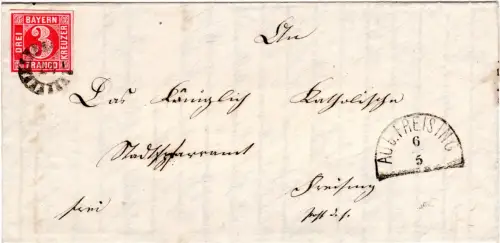 BAYERN
DREI
3
KREUZER
FRANCO
An
Das Königlich Katholische
Stadtpfarramt
Freising
frei
AU b. FREISING
6
5